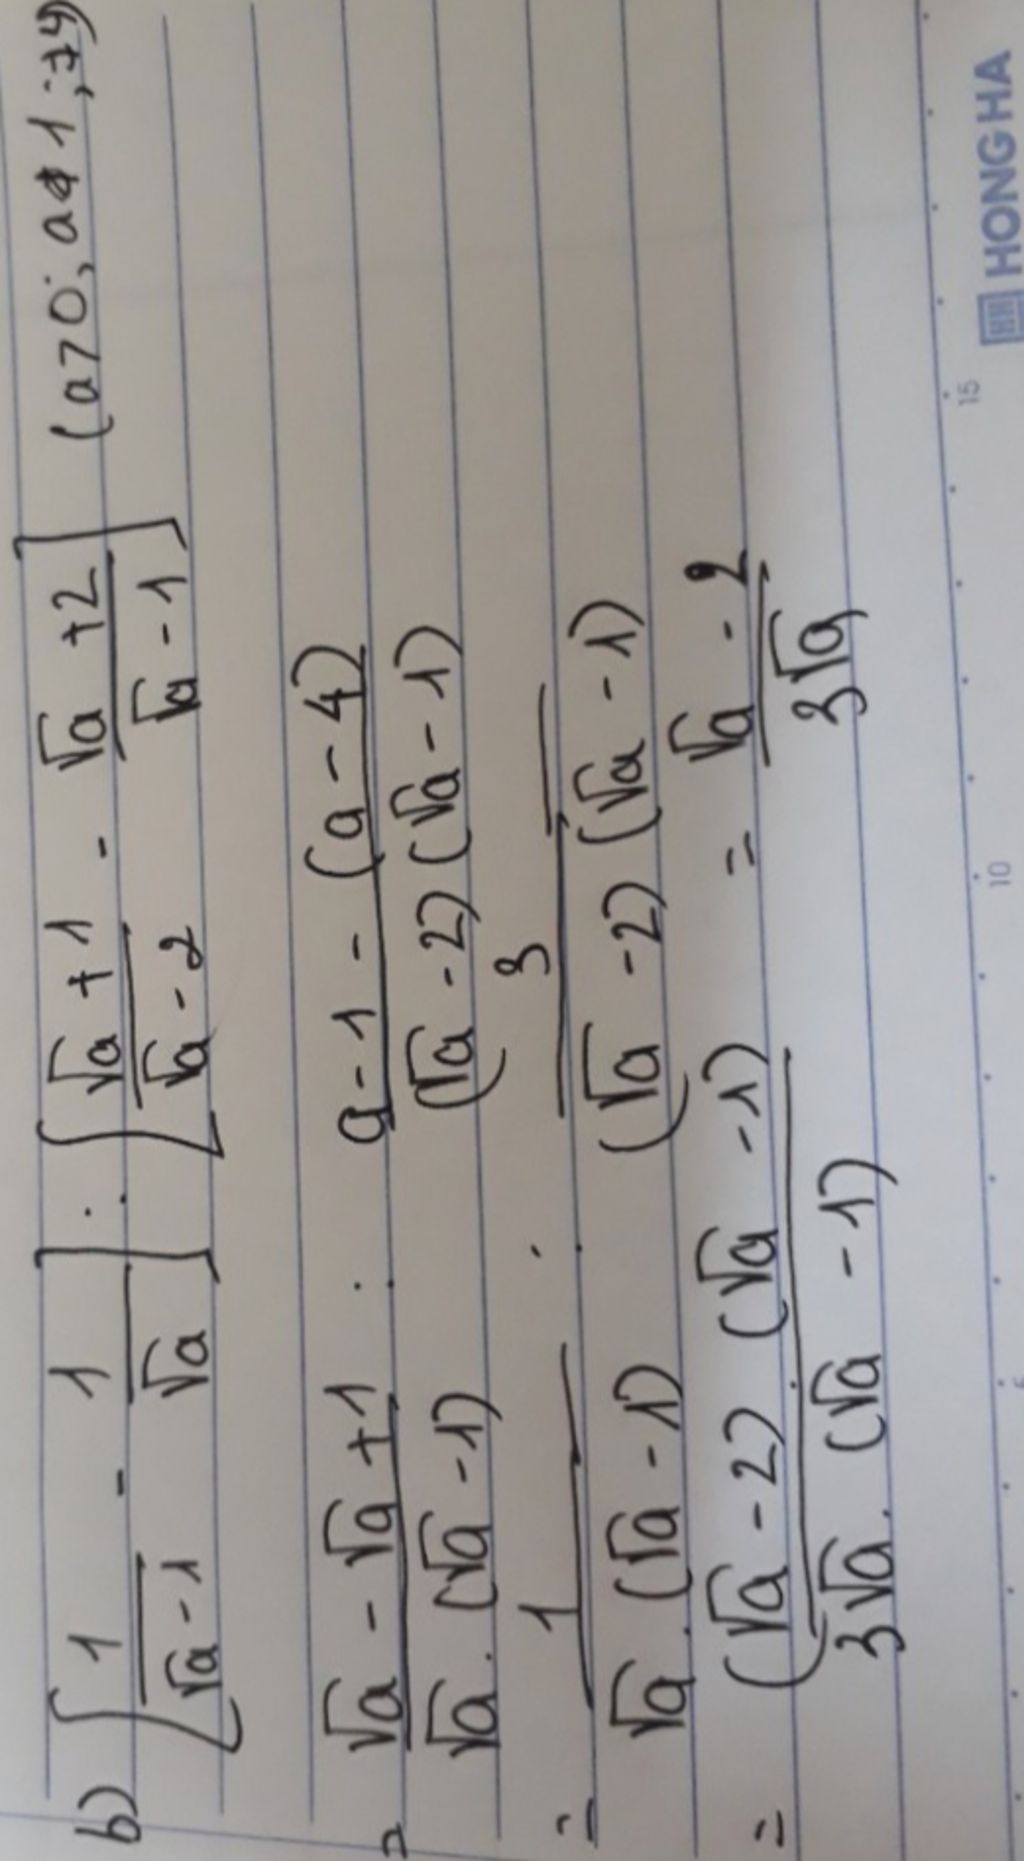 b) [1/(√a - 1) - 1/√a] : [(√a + 1)/(√a - 2) - (√a + 2)/(√a - 1)] (a>0; a≠1; ≠4)
= (√a - √a + 1)/(√a . (√a - 1)) : (a - 1 - (a - 4))/((√a - 2)(√a - 1))
= 1/(√a . (√a - 1)) : 3/((√a - 2)(√a - 1))
= ((√a - 2)(√a - 1))/(3√a . (√a - 1)) = (√a - 2)/(3√a)
5 10 15
HH HONG HA